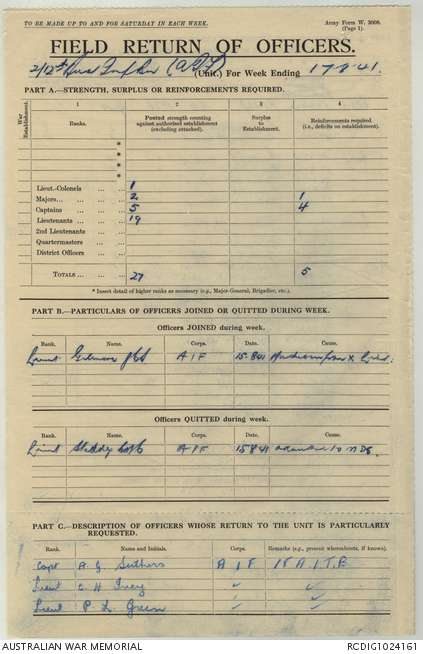 TO BE MADE UP TO AND FOR SATURDAY IN EACH WEEK.
Army Form W. 3008.
(Page 1).
FIELD RETURN OF OFFICERS.
2/12th Aus (AIF) (Unit.) For Week Ending 17 8 41.
PART A.—STRENGTH, SURPLUS OR REINFORCEMENTS REQUIRED.
War Establishment.
1
2
3
4
Ranks.
Posted strength counting against authorized establishment (excluding attached).
Surplus to Establishment.
Reinforcements required (i.e., deficits on establishment).
*
*
*
*
Lieut.-Colonels ... ... 1
Majors... ... ... ... 2 1
Captains ... ... ... 5 4
Lieutenants ... ... ... 19
2nd Lieutenants ... ...
Quartermasters ... ...
District Officers ... ...
TOTALS ... ... ... 27 5
* Insert detail of higher ranks as necessary (e.g., Major-General, Brigadier, etc.).
PART B.—PARTICULARS OF OFFICERS JOINED OR QUITTED DURING WEEK.
Officers JOINED during week.
Rank. Name. Corps. Date. Cause.
Lieut AIF 15 8 41
Officers QUITTED during week.
Rank. Name. Corps. Date. Cause.
Lieut AIF 15 8 41 to
PART C.—DESCRIPTION OF OFFICERS WHOSE RETURN TO THE UNIT IS PARTICULARLY REQUESTED.
Rank. Name and Initials. Corps. Remarks (e.g., present whereabouts, if known).
Capt A. J. Suthers A I F 18 A I T B
Lieut C H Ivey " "
Lieut P. L. Green " "
AUSTRALIAN WAR MEMORIAL
RCDIG1024161